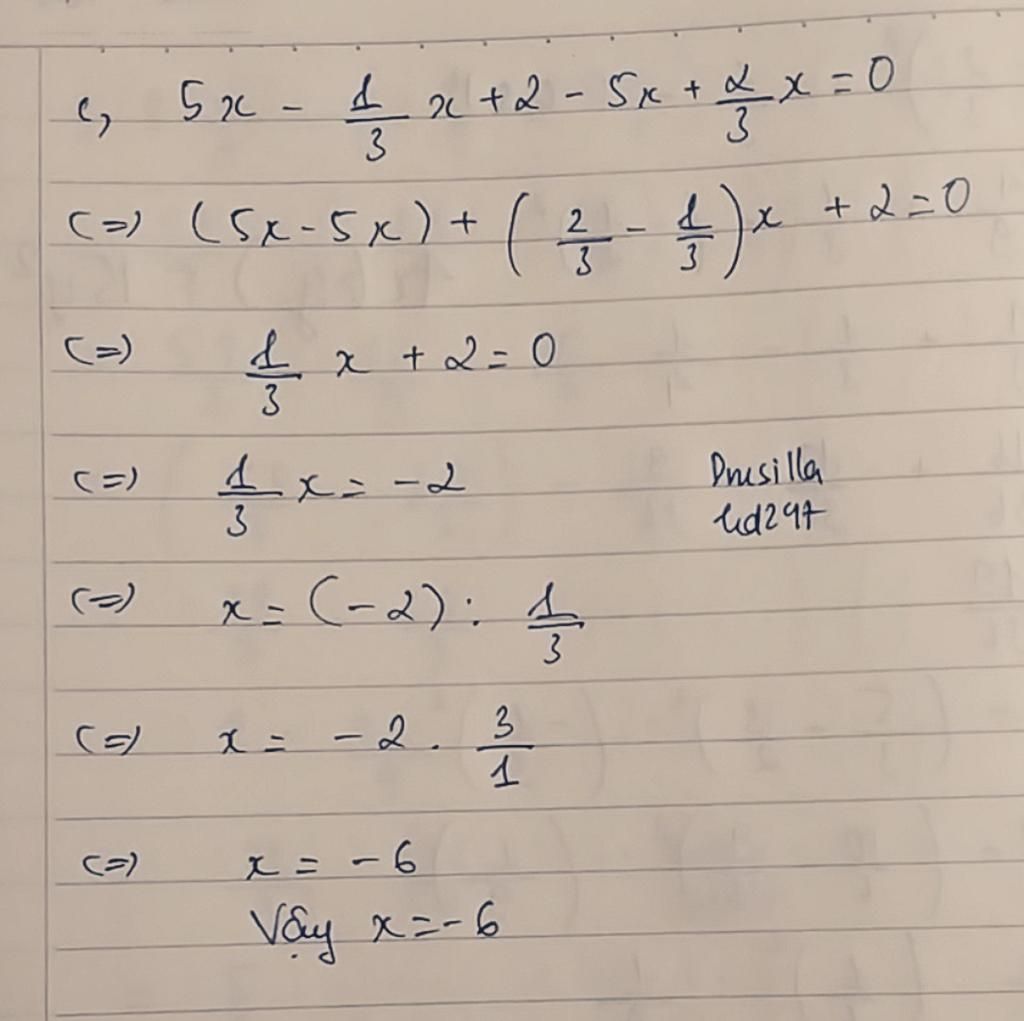 c, 5x - 1/3 x + 2 - 5x + 2/3 x = 0
<=> (5x - 5x) + (2/3 - 1/3)x + 2 = 0
<=> 1/3 x + 2 = 0
<=> 1/3 x = -2
Drusilla
<=> x = (-2) : 1/3
<=> x = -2 . 3/1
<=> x = -6
Vậy x = -6